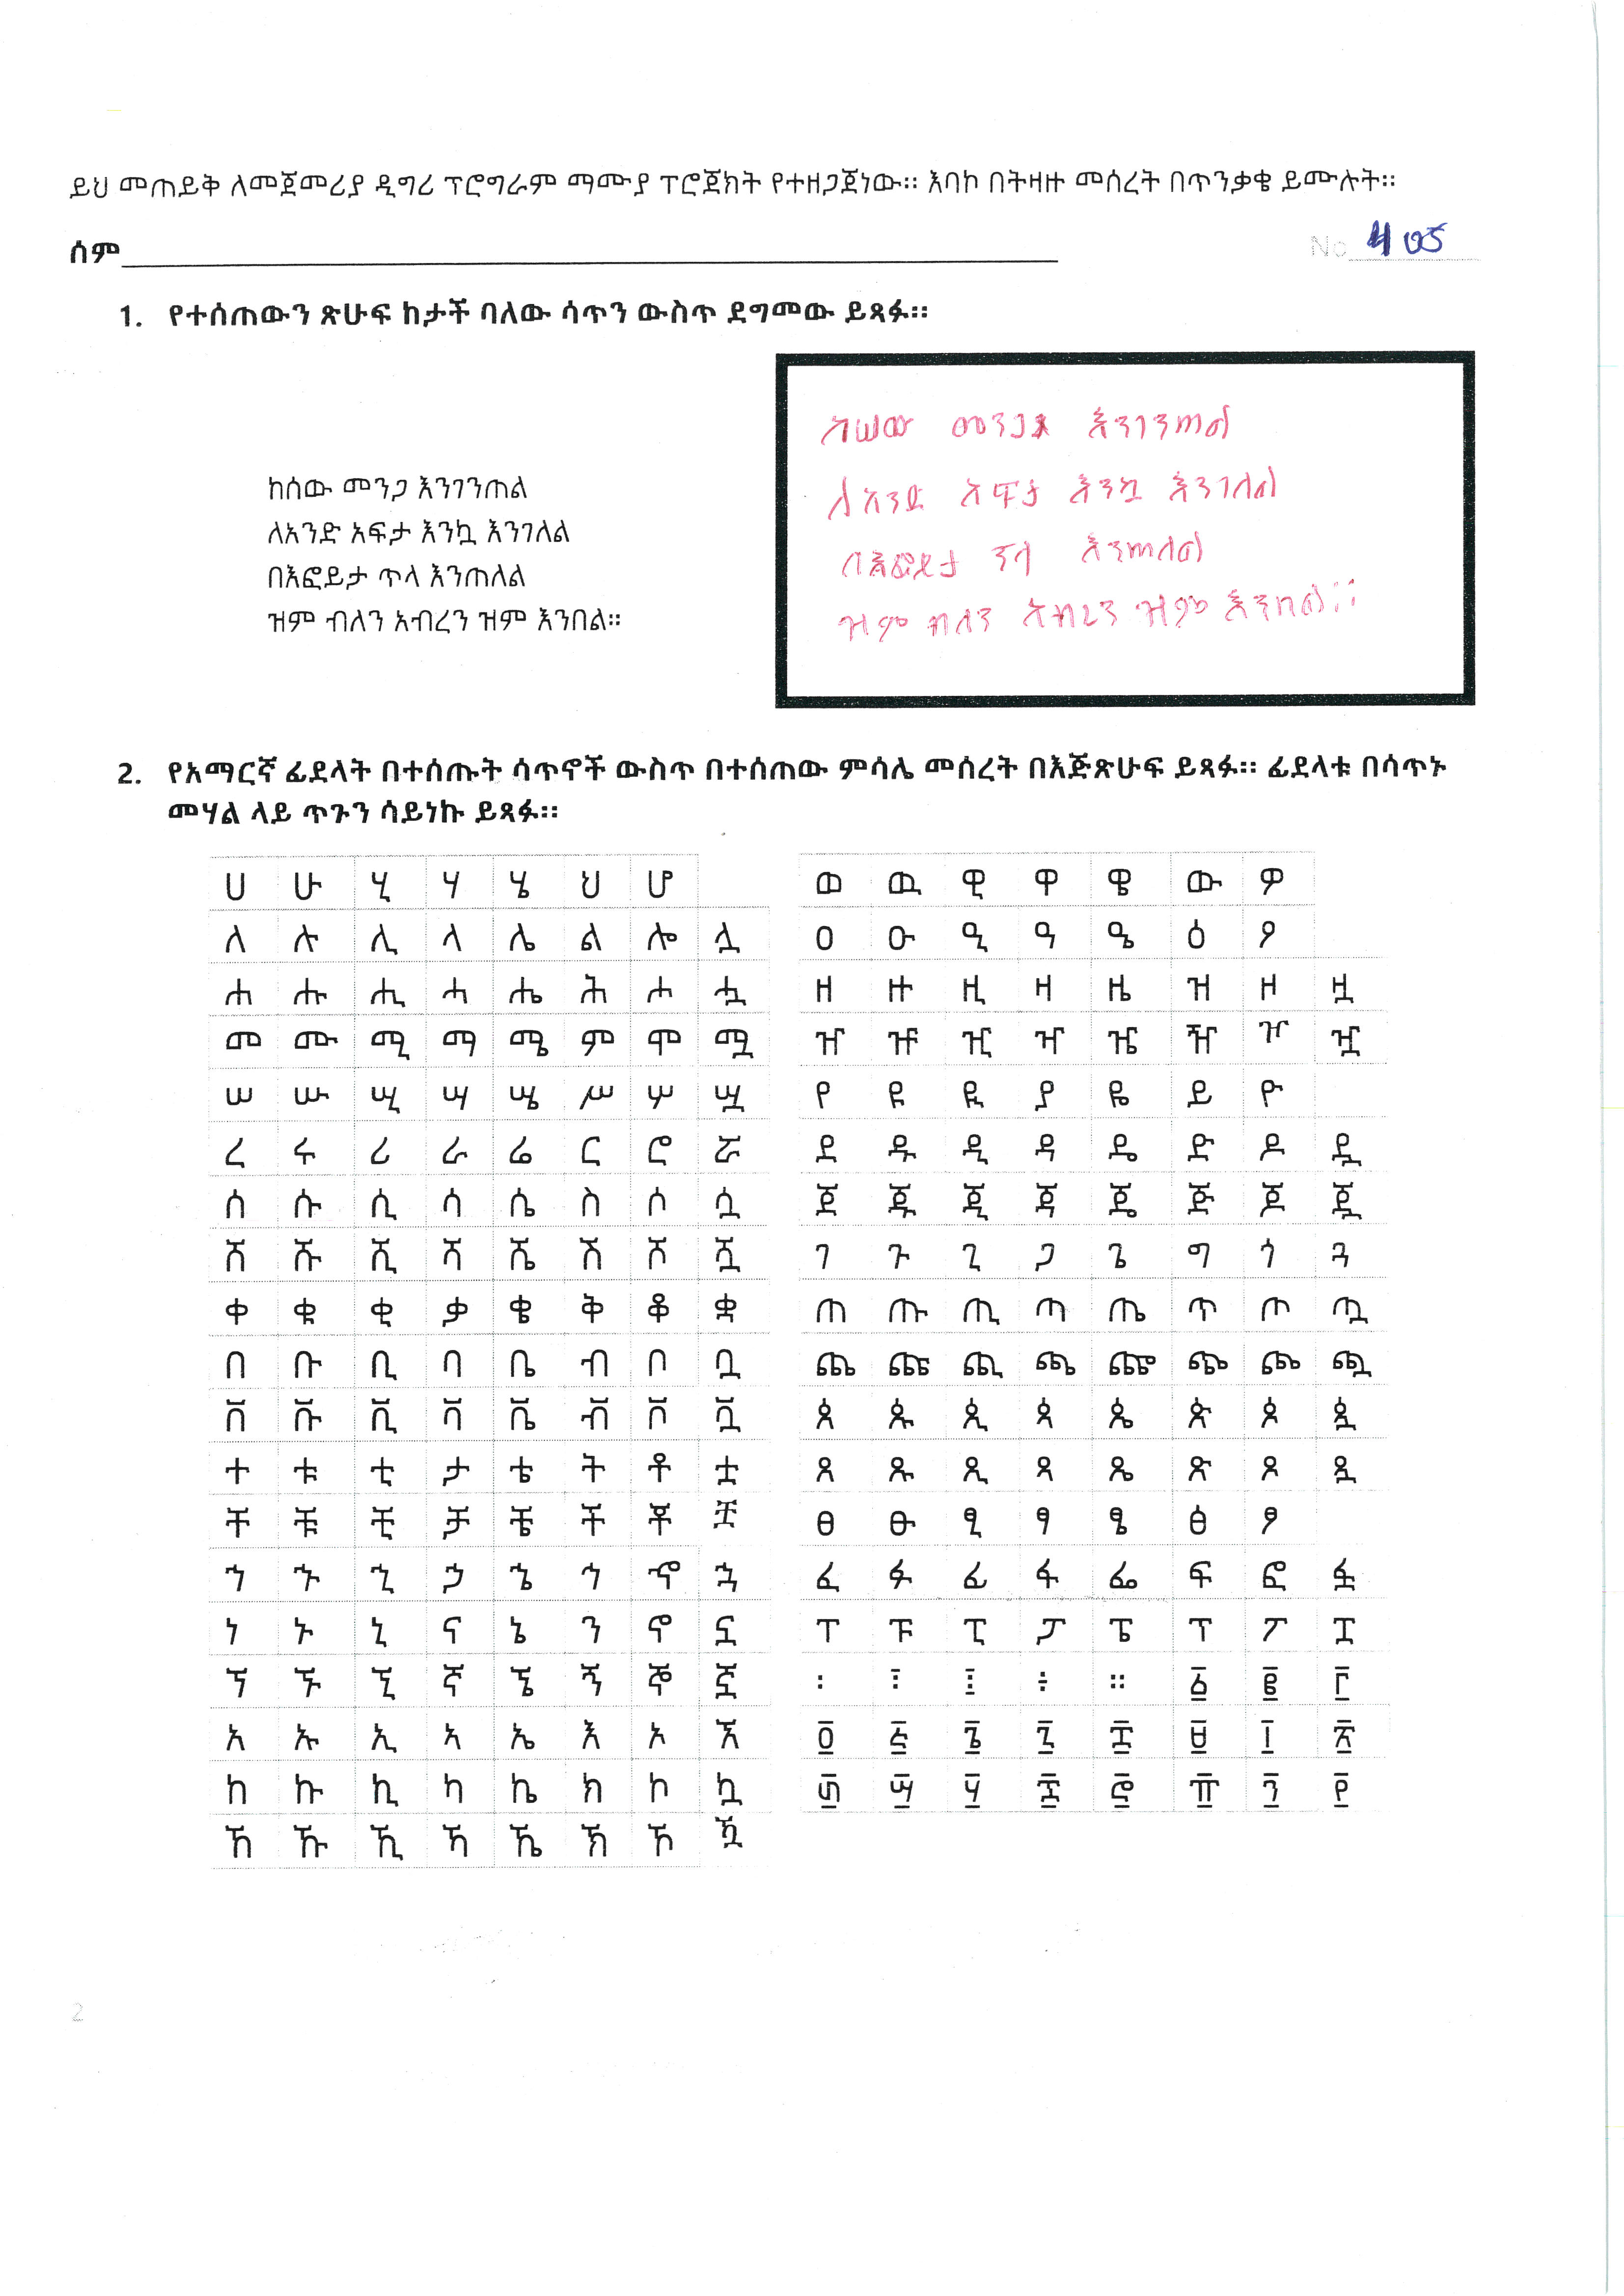 ይህ መጠይቅ ለመጀመሪያ ዲግሪ ፕሮግራም ማሙያ ፕሮጀክት የተዘጋጀነው። እባኮ በትዛዙ መሰረት በጥንቃቄ ይሙሉት።
ሰም
No 405
1. የተሰጠውን ጽሁፍ ከታች ባለው ሳጥን ውስጥ ደግመው ይጻፉ።
ከሰው መንጋ እንገንጠል
ለአንድ አፍታ እንኳ እንገለል
በእፎይታ ጥላ እንጠለል
ዝም ብለን አብረን ዝም እንበል።
ከሠው መንጋ እንገንጠል
ለአንድ አፍታ እንኳ እንገለል
በእፎይታ ጥላ እንጠለል
ዝም ብለን አብረን ዝም እንበል።
2. የአማርኛ ፊደላት በተሰጡት ሳጥኖች ውስጥ በተሰጠው ምሳሌ መሰረት በእጅጽሁፍ ይጻፉ። ፊደላቱ በሳጥኑ
መሃል ላይ ጥጉን ሳይነኩ ይጻፉ።
ሀ ሁ ሂ ሃ ሄ ህ ሆ
ለ ሉ ሊ ላ ሌ ል ሎ ሏ
ሐ ሑ ሒ ሓ ሔ ሕ ሖ ሗ
መ ሙ ሚ ማ ሜ ም ሞ ሟ
ሠ ሡ ሢ ሣ ሤ ሥ ሦ ሧ
ረ ሩ ሪ ራ ሬ ር ሮ ሯ
ሰ ሱ ሲ ሳ ሴ ስ ሶ ሷ
ሸ ሹ ሺ ሻ ሼ ሽ ሾ ሿ
ቀ ቁ ቂ ቃ ቄ ቅ ቆ ቋ
በ ቡ ቢ ባ ቤ ብ ቦ ቧ
ቨ ቩ ቪ ቫ ቬ ቭ ቮ ቯ
ተ ቱ ቲ ታ ቴ ት ቶ ቷ
ቸ ቹ ቺ ቻ ቼ ች ቾ ቿ
ኀ ኁ ኂ ኃ ኄ ኅ ኆ ኋ
ነ ኑ ኒ ና ኔ ን ኖ ኗ
ኘ ኙ ኚ ኛ ኜ ኝ ኞ ኟ
አ ኡ ኢ ኣ ኤ እ ኦ ኧ
ከ ኩ ኪ ካ ኬ ክ ኮ ኳ
ኸ ኹ ኺ ኻ ኼ ኽ ኾ ዃ
ወ ዉ ዊ ዋ ዌ ው ዎ
ዐ ዑ ዒ ዓ ዔ ዕ ዖ
ዘ ዙ ዚ ዛ ዜ ዝ ዞ ዟ
ዠ ዡ ዢ ዣ ዤ ዥ ዦ ዧ
የ ዩ ዪ ያ ዬ ይ ዮ
ደ ዱ ዲ ዳ ዴ ድ ዶ ዷ
ጀ ጁ ጂ ጃ ጄ ጅ ጆ ጇ
ገ ጉ ጊ ጋ ጌ ግ ጎ ጓ
ጠ ጡ ጢ ጣ ጤ ጥ ጦ ጧ
ጨ ጩ ጪ ጫ ጬ ጭ ጮ ጯ
ጰ ጱ ጲ ጳ ጴ ጵ ጶ ጷ
ጸ ጹ ጺ ጻ ጼ ጽ ጾ ጿ
ፀ ፁ ፂ ፃ ፄ ፅ ፆ
ፈ ፉ ፊ ፋ ፌ ፍ ፎ ፏ
ፐ ፑ ፒ ፓ ፔ ፕ ፖ ፗ
፡ ፧ ፤ ፥ ። ፩ ፪ ፫
፬ ፭ ፮ ፯ ፰ ፱ ፲ ፳
፴ ፵ ፶ ፷ ፸ ፹ ፺ ፻
2